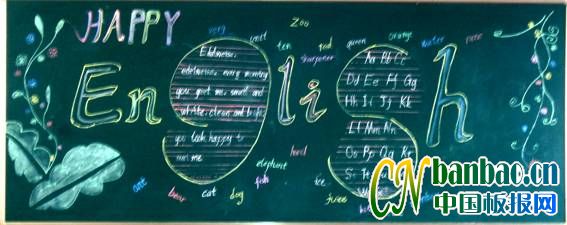 HAPPY
Zoo
ten
red
green
orange
water
sharpener
EngliSh
Edelweiss,
edelweiss, every morning
you greet me, small and
white, clean and bright,
you look happy to
meet me
Aa Bb Cc
Dd Ee Ff Gg
Hh Ii Jj Kk
Ll Mm Nn
Oo Pp Qq Rr
elephant
ant
bear
cat
dog
fish
ice
CNbanbao.cn
中国板报网